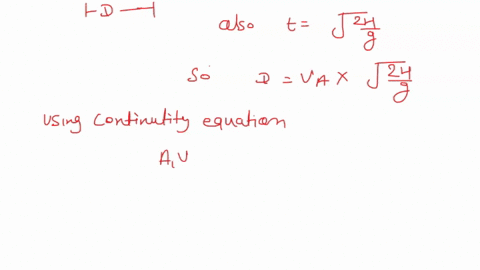 ⊢D—⊣
also t = √2H/g
So D = VA × √2H/g
using Continutity equation
A₁U